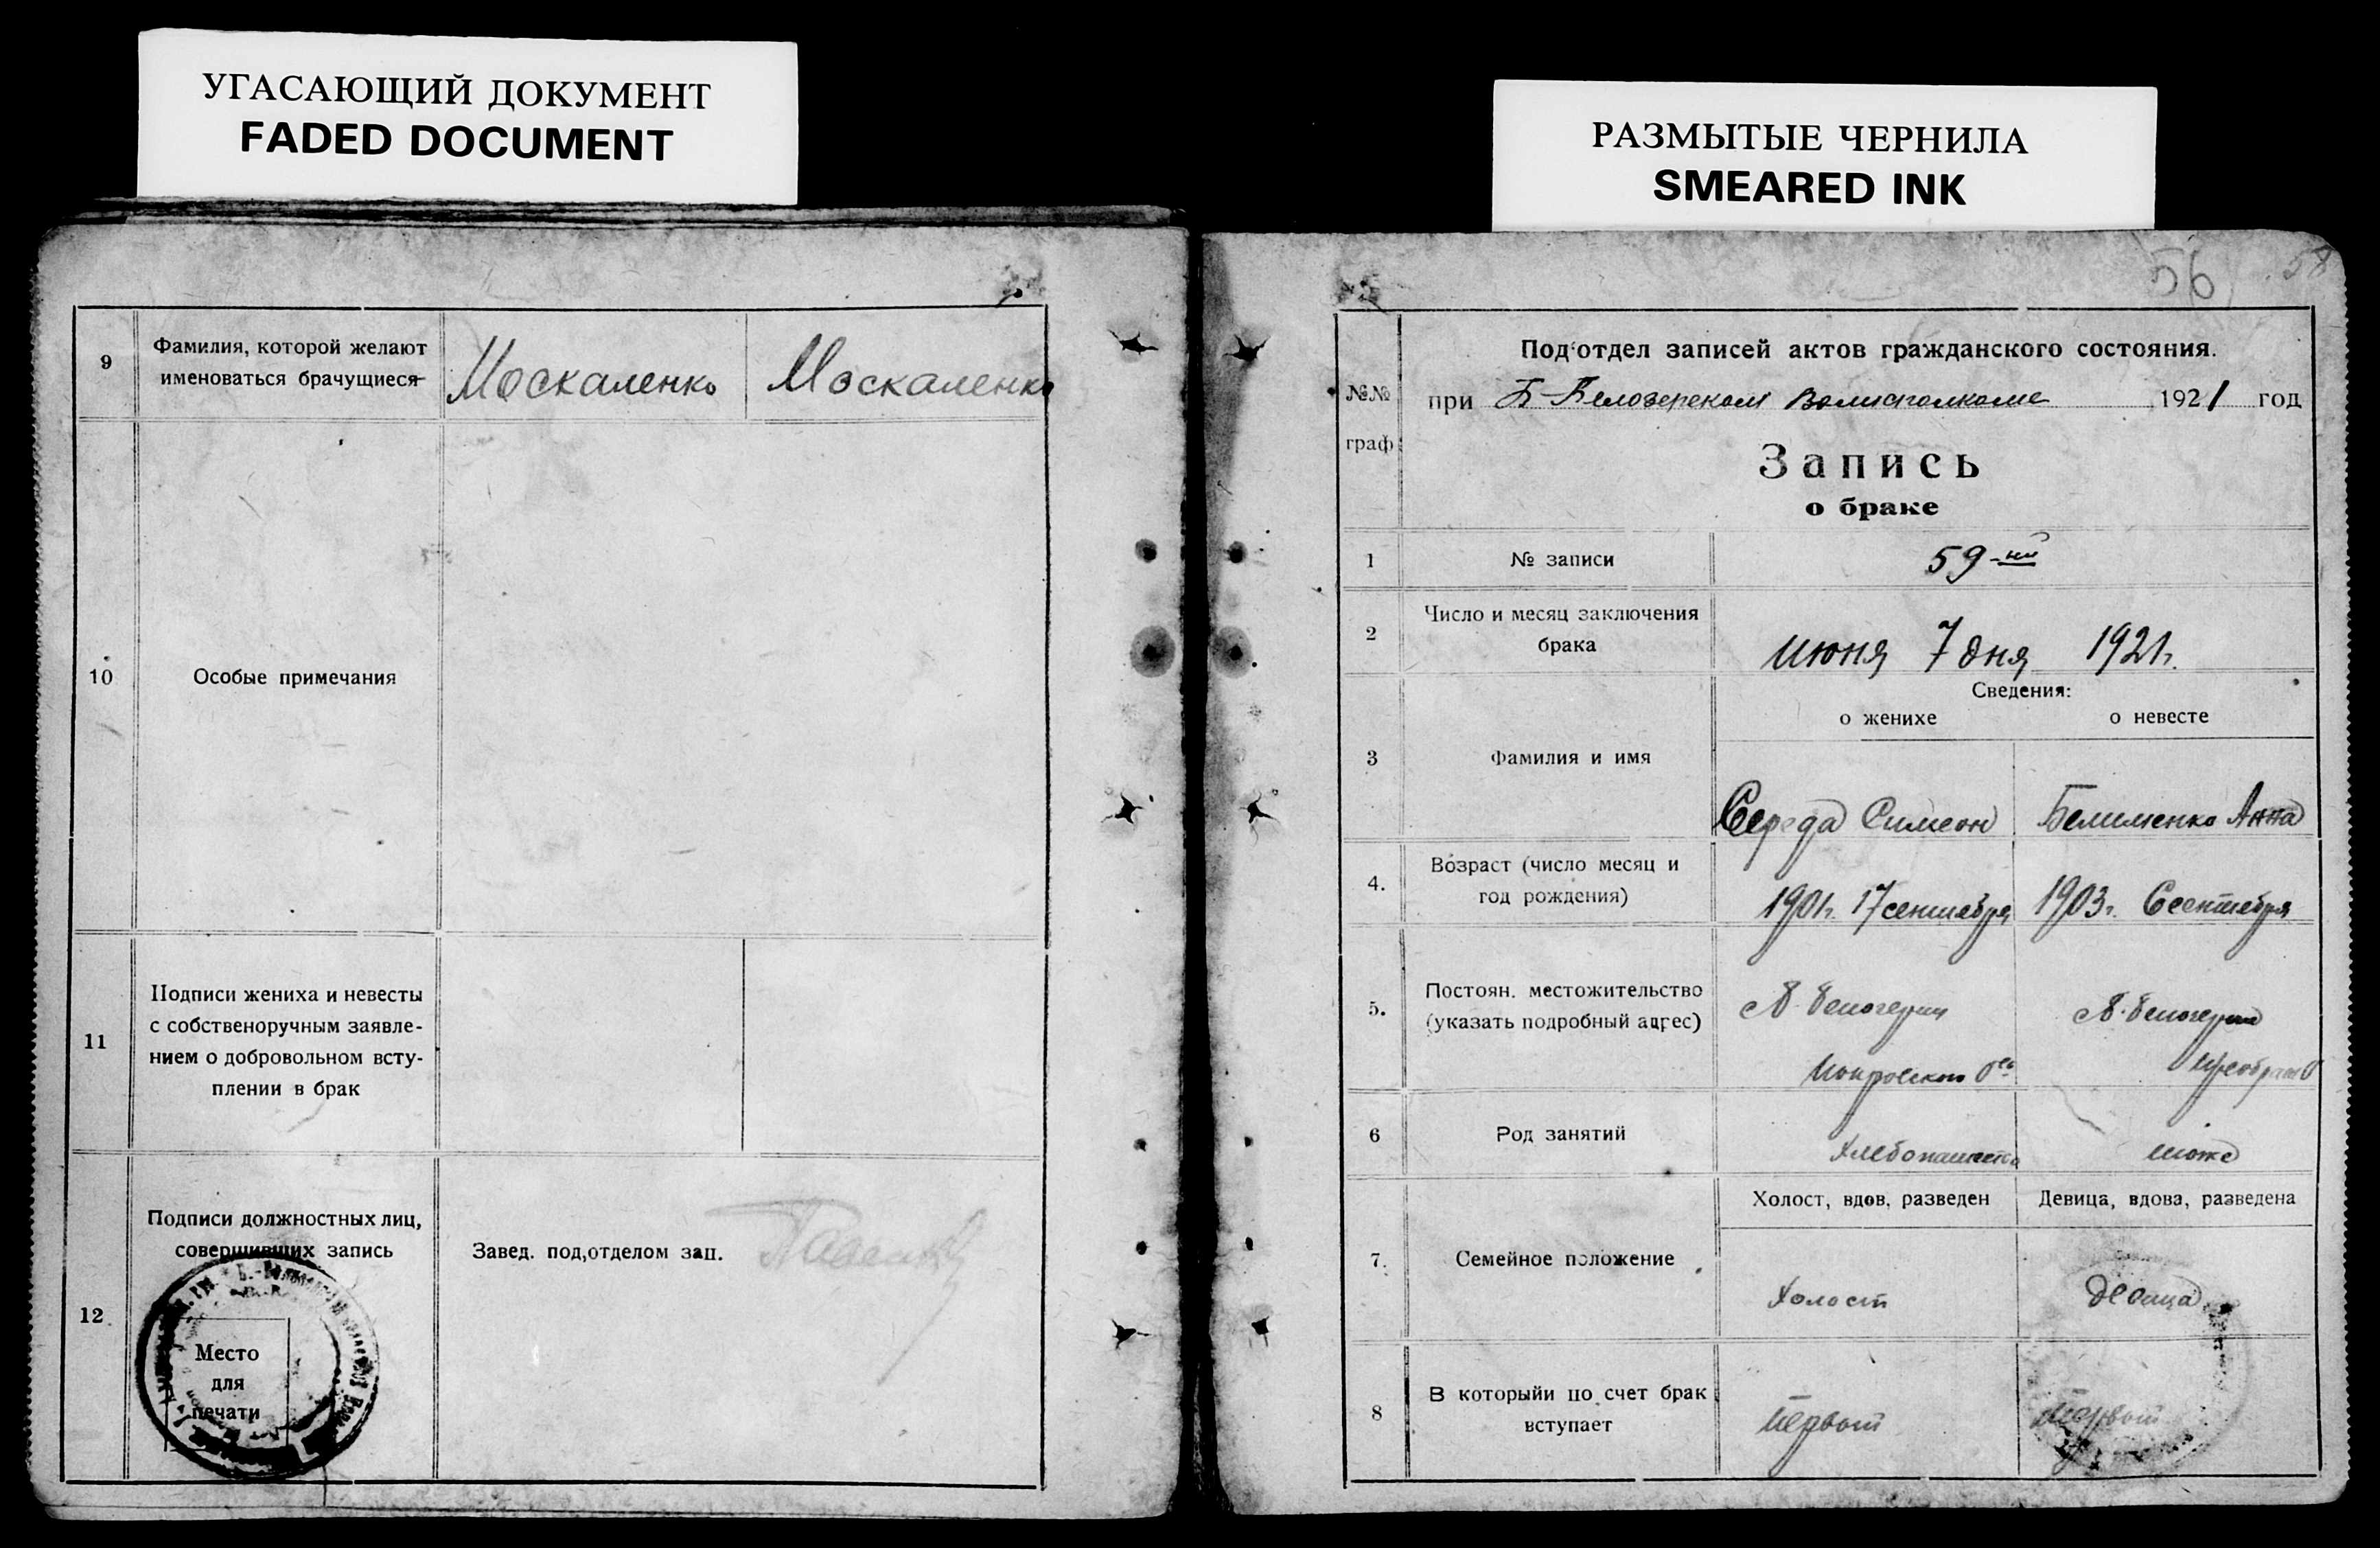 УГАСАЮЩИЙ ДОКУМЕНТ
FADED DOCUMENT
9
Фамилия, которой желают
именоваться брачущиеся
Москаленко
Москаленко
10
Особые примечания
11
Подписи жениха и невесты
с собственоручным заявле-
нием о добровольном всту-
плении в брак
12
Подписи должностных лиц,
совершивших запись
Завед. под,отделом зап.
Место
для
печати
РАЗМЫТЫЕ ЧЕРНИЛА
SMEARED INK
56
58
№№
граф
Под'отдел записей актов гражданского состояния.
при Б-Белозерском Волисполкоме 1921 год
Запись
о браке
1
№ записи
59-ый
2
Число и месяц заключения
брака
июня 7 дня 1921г.
Сведения:
о женихе
о невесте
3
Фамилия и имя
Середа Симеон
Белименко Анна
4.
Возраст (число месяц и
год рождения)
1901г. 17 сентября
1903г. 6 сентября
5.
Постоян. местожительство
(указать подробный адрес)
6
Род занятий
Хлебопашество
тоже
7.
Семейное положение
Холост, вдов, разведен
Девица, вдова, разведена
Холост
девица
8
В которыйи по счет брак
вступает
первый
первый